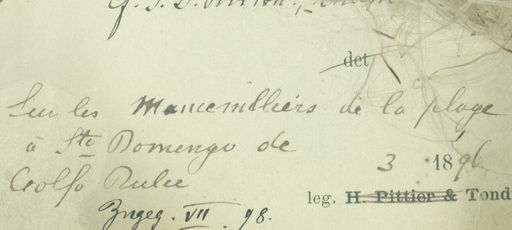 det
Sur les Mancenilliers de la plage
à Sto Domengo de
Golfo Dulce
3 1896
leg. H. Pittier & Tond
VII 98.